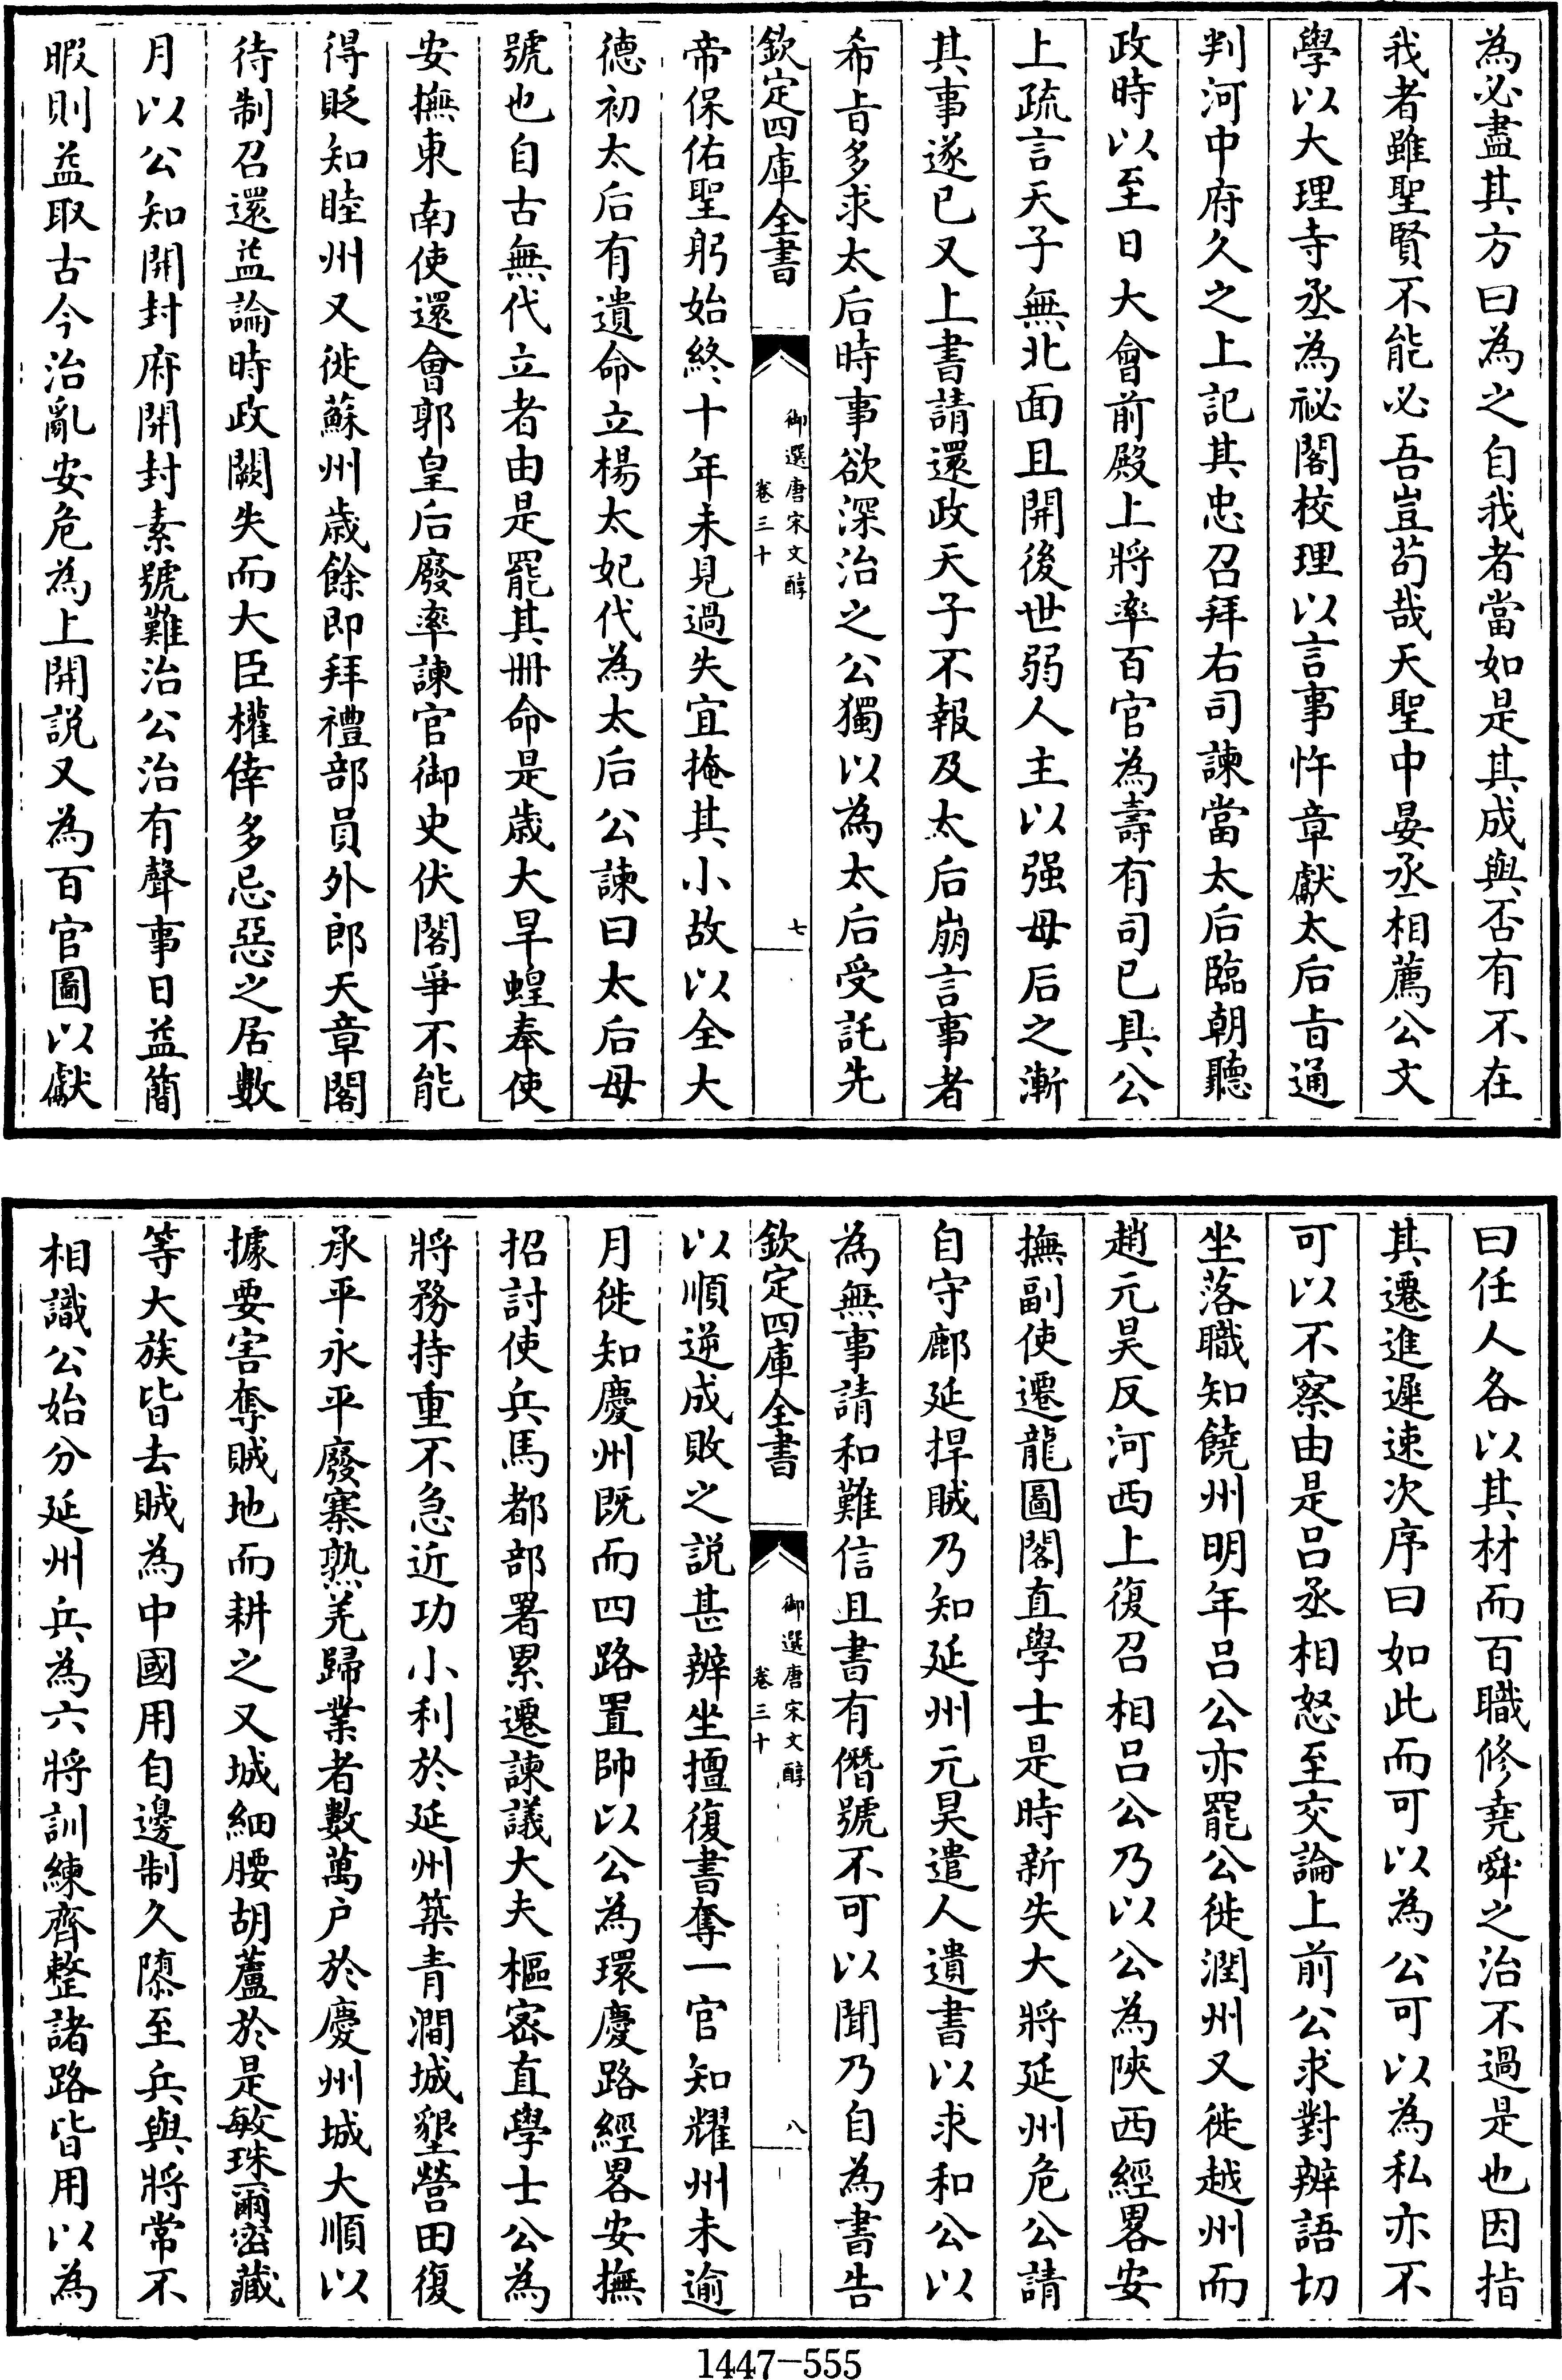 為必盡其方曰為之自我者當如是其成與否有不在
我者雖聖賢不能必吾豈苟哉天聖中晏丞相薦公文
學以大理寺丞為祕閣校理以言事忤章獻太后㫖通
判河中府久之上記其忠召拜右司諫當太后臨朝聽
政時以至日大會前殿上將率百官為壽有司已具公
上疏言天子無北面且開後世弱人主以强母后之漸
其事遂已又上書請還政天子不報及太后崩言事者
希㫖多求太后時事欲深治之公獨以為太后受託先
欽定四庫全書
御選唐宋文醇
卷三十
七
帝保佑聖躬始終十年未見過失宜掩其小故以全大
德初太后有遺命立楊太妃代為太后公諫曰太后母
號也自古無代立者由是罷其冊命是歲大旱蝗奉使
安撫東南使還會郭皇后廢率諫官御史伏閤爭不能
得貶知睦州又徙蘇州歲餘即拜禮部員外郎天章閣
待制召還益論時政闕失而大臣權倖多忌惡之居數
月以公知開封府開封素號難治公治有聲事日益簡
暇則益取古今治亂安危為上開說又為百官圖以獻
曰任人各以其材而百職修堯舜之治不過是也因指
其遷進遲速次序曰如此而可以為公可以為私亦不
可以不察由是呂丞相怒至交論上前公求對辨語切
坐落職知饒州明年呂公亦罷公徙潤州又徙越州而
趙元昊反河西上復召相呂公乃以公為陝西經畧安
撫副使遷龍圖閣直學士是時新失大將延州危公請
自守鄜延捍賊乃知延州元昊遣人遺書以求和公以
為無事請和難信且書有僭號不可以聞乃自為書告
欽定四庫全書
御選唐宋文醇
卷三十
八
以順逆成敗之說甚辨坐擅復書奪一官知耀州未逾
月徙知慶州既而四路置帥以公為環慶路經畧安撫
招討使兵馬都部署累遷諫議大夫樞密直學士公為
將務持重不急近功小利於延州築青澗城墾營田復
承平永平廢寨熟羌歸業者數萬戶於慶州城大順以
據要害奪賊地而耕之又城細腰胡蘆於是敏珠爾密藏
等大族皆去賊為中國用自邊制久隳至兵與將常不
相識公始分延州兵為六將訓練齊整諸路皆用以為
1447—555